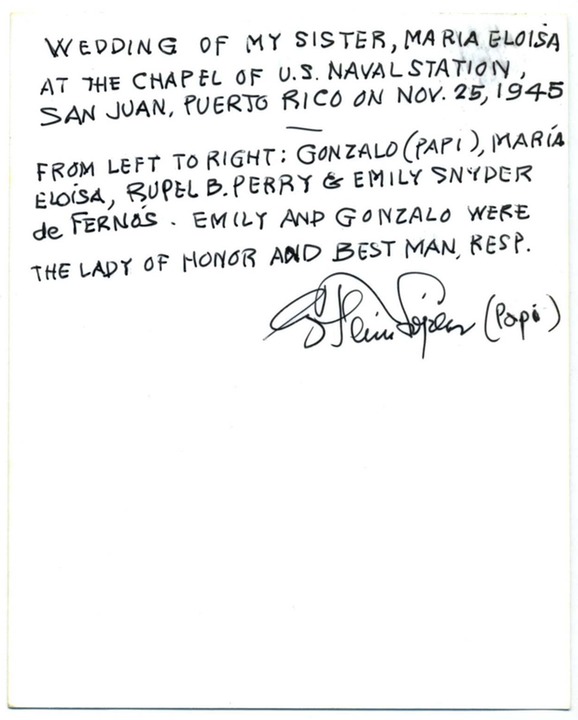 WEDDING OF MY SISTER, MARIA ELOISA
AT THE CHAPEL OF U.S. NAVAL STATION,
SAN JUAN, PUERTO RICO ON NOV. 25, 1945
—
FROM LEFT TO RIGHT: GONZALO (PAPI), MARÍA
ELOÍSA, RUPEL B. PERRY & EMILY SNYDER
de FERNÓS. EMILY AND GONZALO WERE
THE LADY OF HONOR AND BEST MAN, RESP.
(Papi)